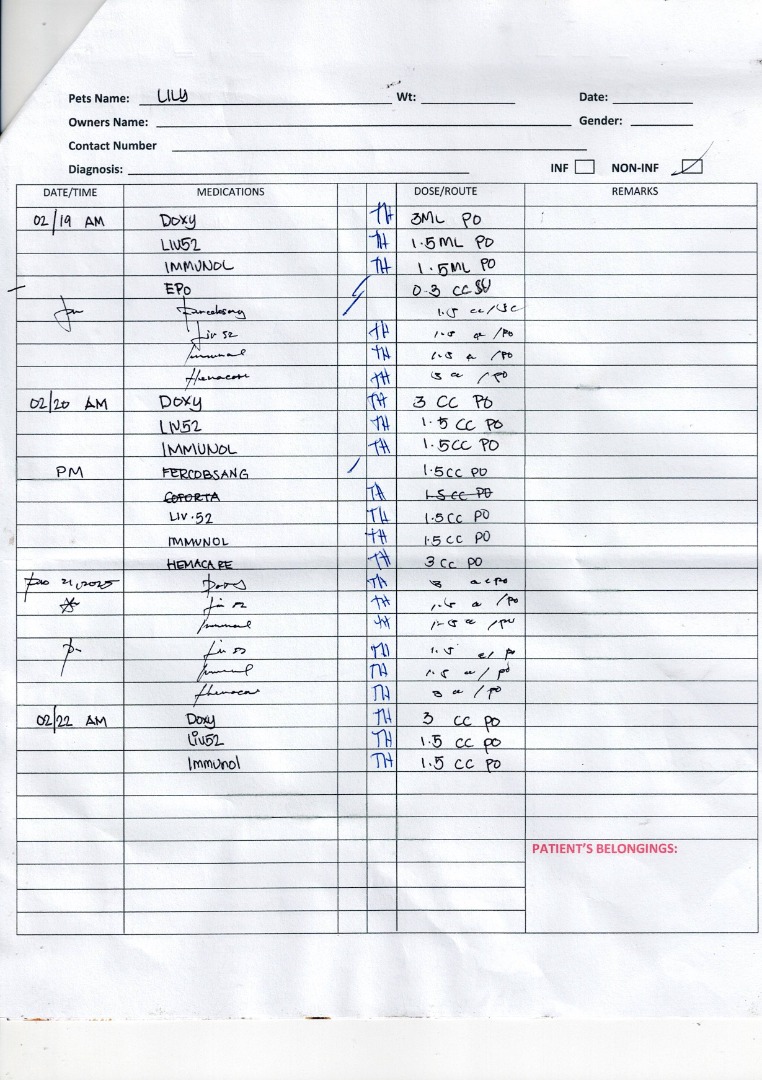 Pets Name: LILY Wt: Date:
Owners Name: Gender:
Contact Number
Diagnosis: INF NON-INF
DATE/TIME MEDICATIONS DOSE/ROUTE REMARKS
02/19 AM DOXY TH 3ML PO
LIV52 TH 1.5ML PO
IMMUNOL TH 1.5ML PO
EPO 0.3 CC
1.5 cc/SC
Liv 52 TH 1.5 /PO
TH 1.5 /PO
Hemacare TH 3 /PO
02/20 AM DOXY TH 3 CC PO
LIV52 TH 1.5 CC PO
IMMUNOL TH 1.5CC PO
PM FERCOBSANG 1.5CC PO
COFORTA TH 1.5 CC PO
LIV.52 TH 1.5CC PO
IMMUNOL TH 1.5CC PO
HEMACARE TH 3 CC PO
21, 2025 TH 3 PO
Liv 52 TH 1.5 /PO
TH 1.5 /PO
Liv 52 TH 1.5 / PO
TH 1.5 / PO
Hemacare TH 3 /PO
02/22 AM Doxy TH 3 CC PO
Liv52 TH 1.5 CC PO
Immunol TH 1.5 CC PO
PATIENT'S BELONGINGS: